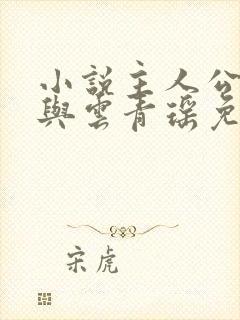 小說主人公
與雲青瑤免
宋虎